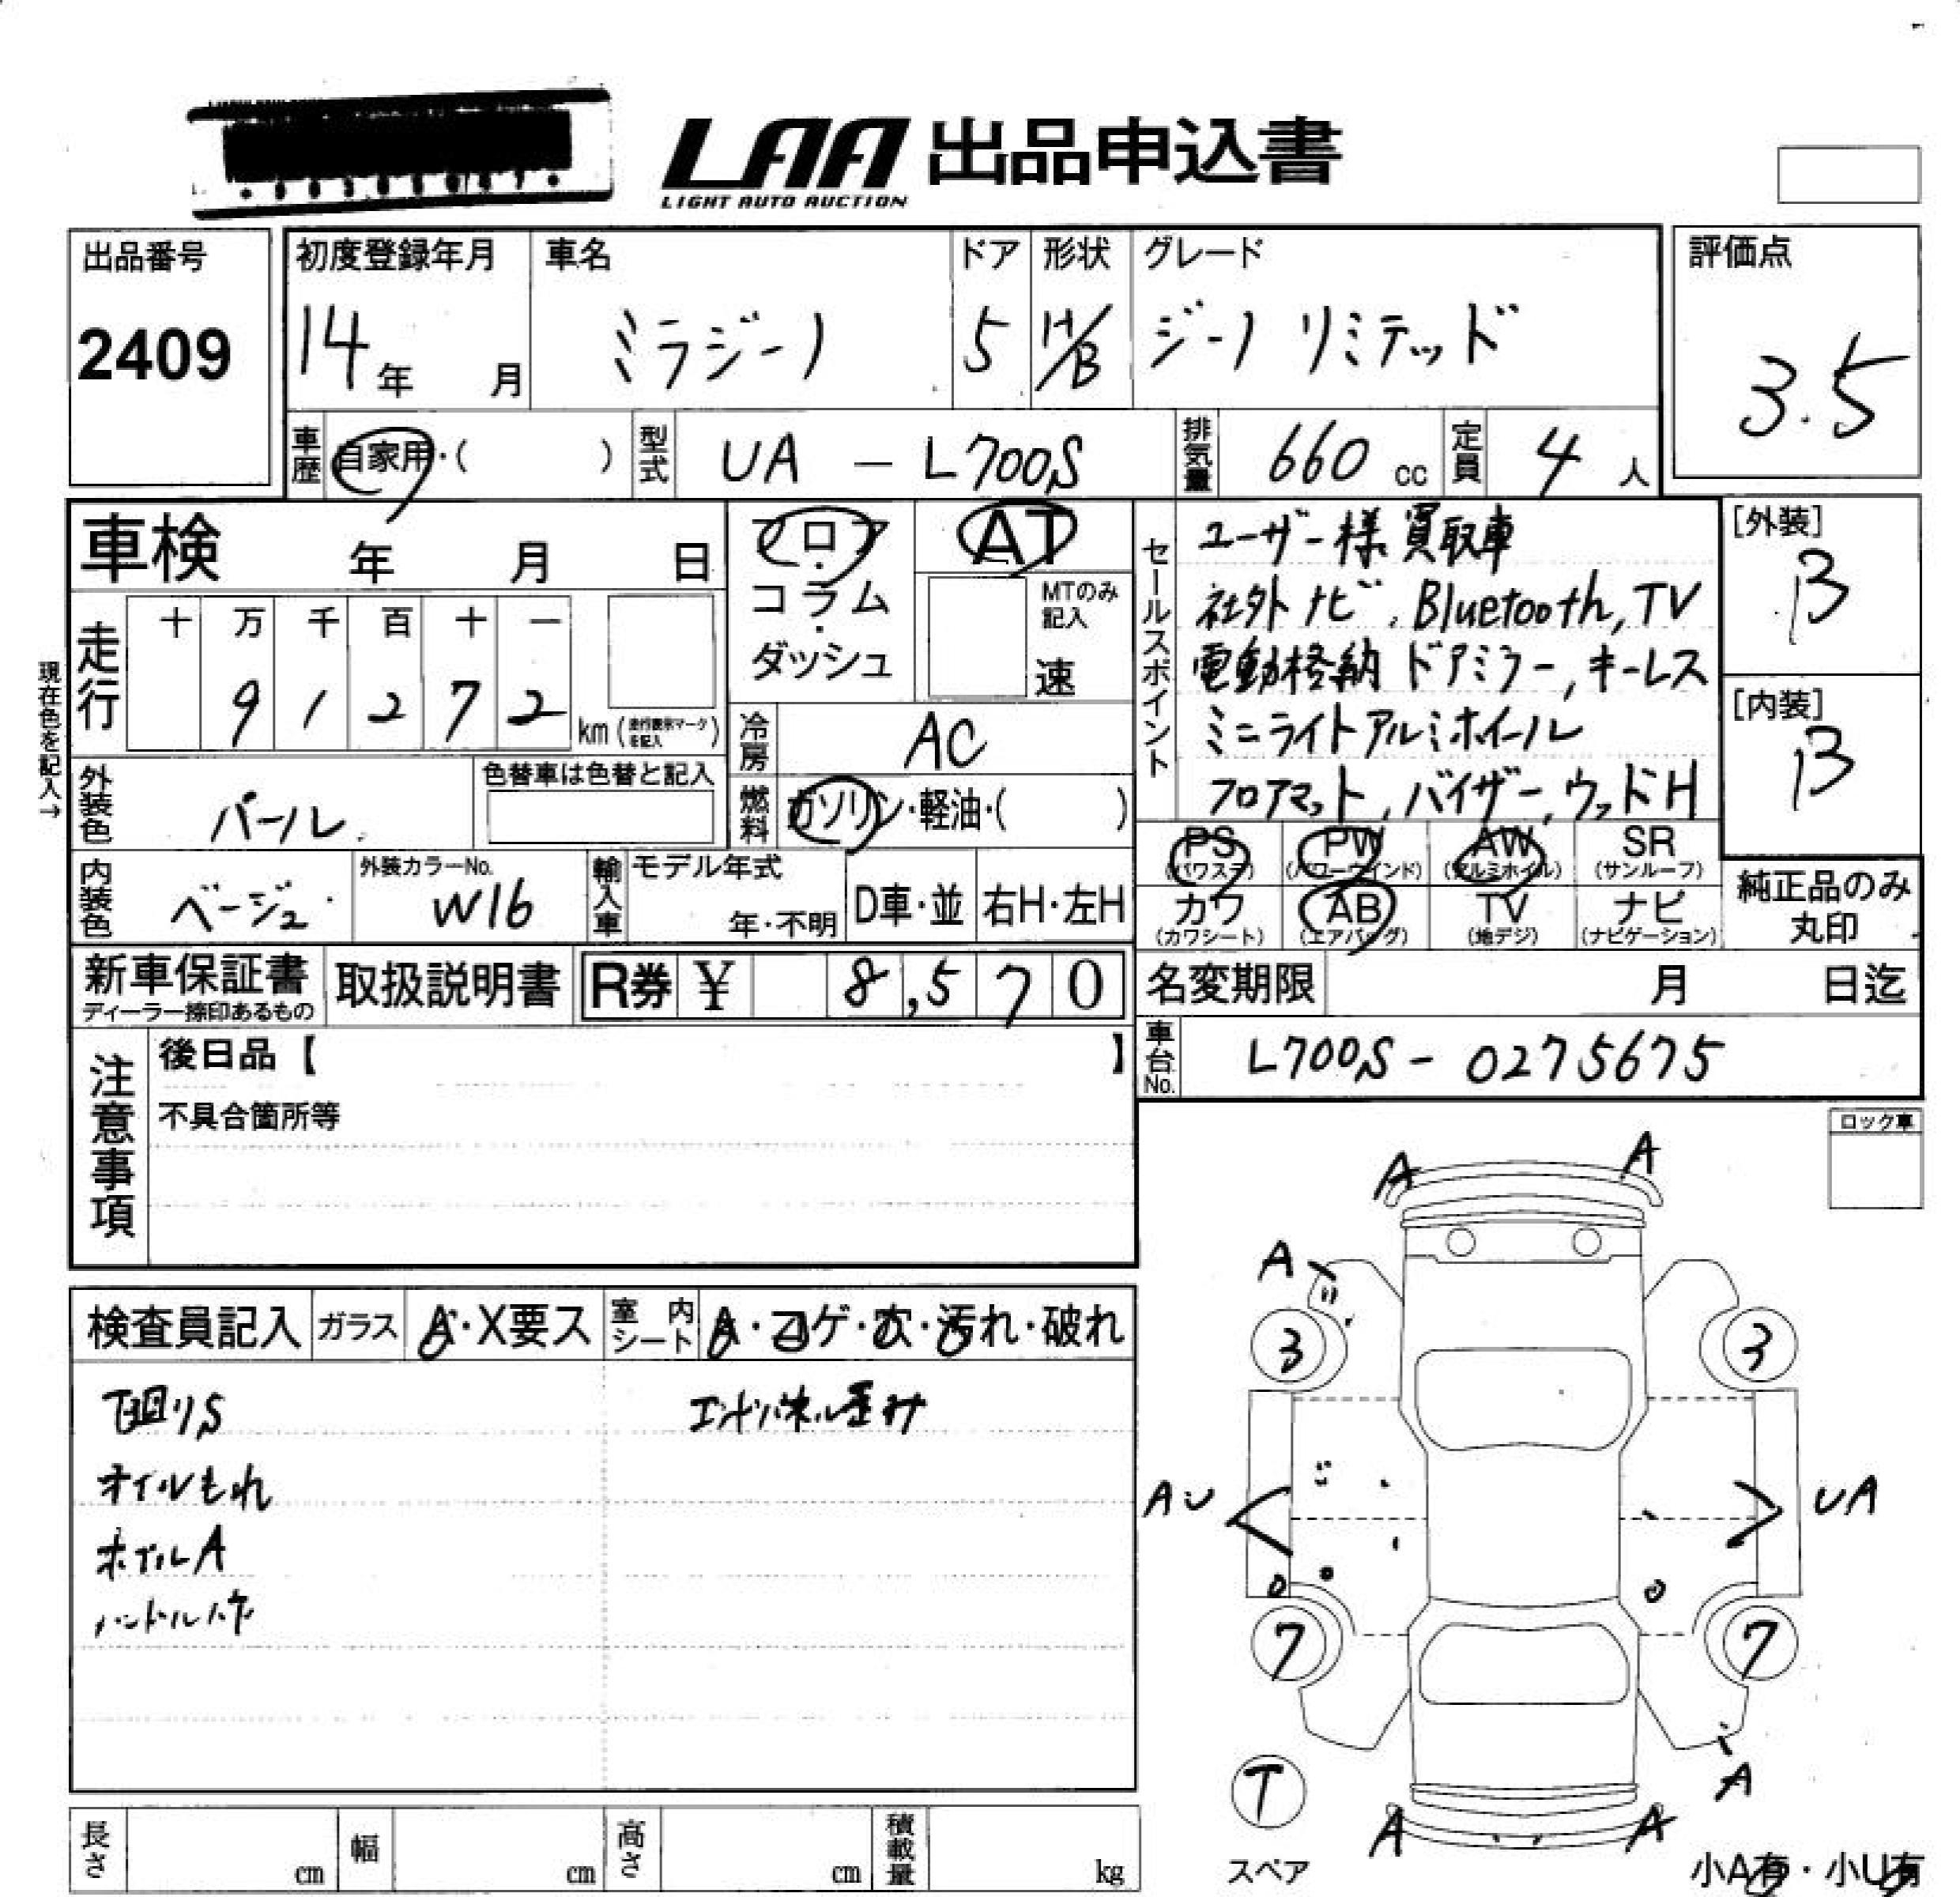 LAA 出品申込書
LIGHT AUTO AUCTION
出品番号 初度登録年月 車名 ドア 形状 グレード 評価点
2409 14年 月 ミラジーノ 5 H/B ジーノ リミテッド 3.5
車歴 自家用・( ) 型式 UA - L700S 排気量 660 cc 定員 4 人
車検 年 月 日
フロア・コラム・ダッシュ
AT
MTのみ記入
速
セールスポイント
ユーザー様買取車
社外ナビ、Bluetooth, TV
電動格納ドアミラー, キーレス
ミニライトアルミホイール
フロアマット, バイザー, ウッドH
[外装]
B
[内装]
B
現在色を記入→
走行 十 万 千 百 十 一
9 1 2 7 2 km (走行表示マークを記入)
冷房 AC
外装色 パール 色替車は色替と記入
燃料 ガソリン・軽油・( )
PS (パワステ) PW (パワーウインド) AW (アルミホイル) SR (サンルーフ)
カワ (カワシート) AB (エアバッグ) TV (地デジ) ナビ (ナビゲーション)
純正品のみ丸印
内装色 ベージュ 外装カラーNo. W16 輸入車 モデル年式 年・不明 D車・並 右H・左H
新車保証書 ディーラー捺印あるもの 取扱説明書 R券 ¥ 8,570
名変期限 月 日迄
車台No. L700S - 0275675
注意事項
後日品【 】
不具合箇所等
ロック車
検査員記入 ガラス A・X要ス 室内シート A・コゲ・穴・汚れ・破れ
下回りS
オイルもれ
ホイルA
ハンドルハゲ
エンドパネル歪み
A A
A
3 3
AU UA
7 7
T
A
A A
スペア
小A有・小U有
長さ cm 幅 cm 高さ cm 積載量 kg